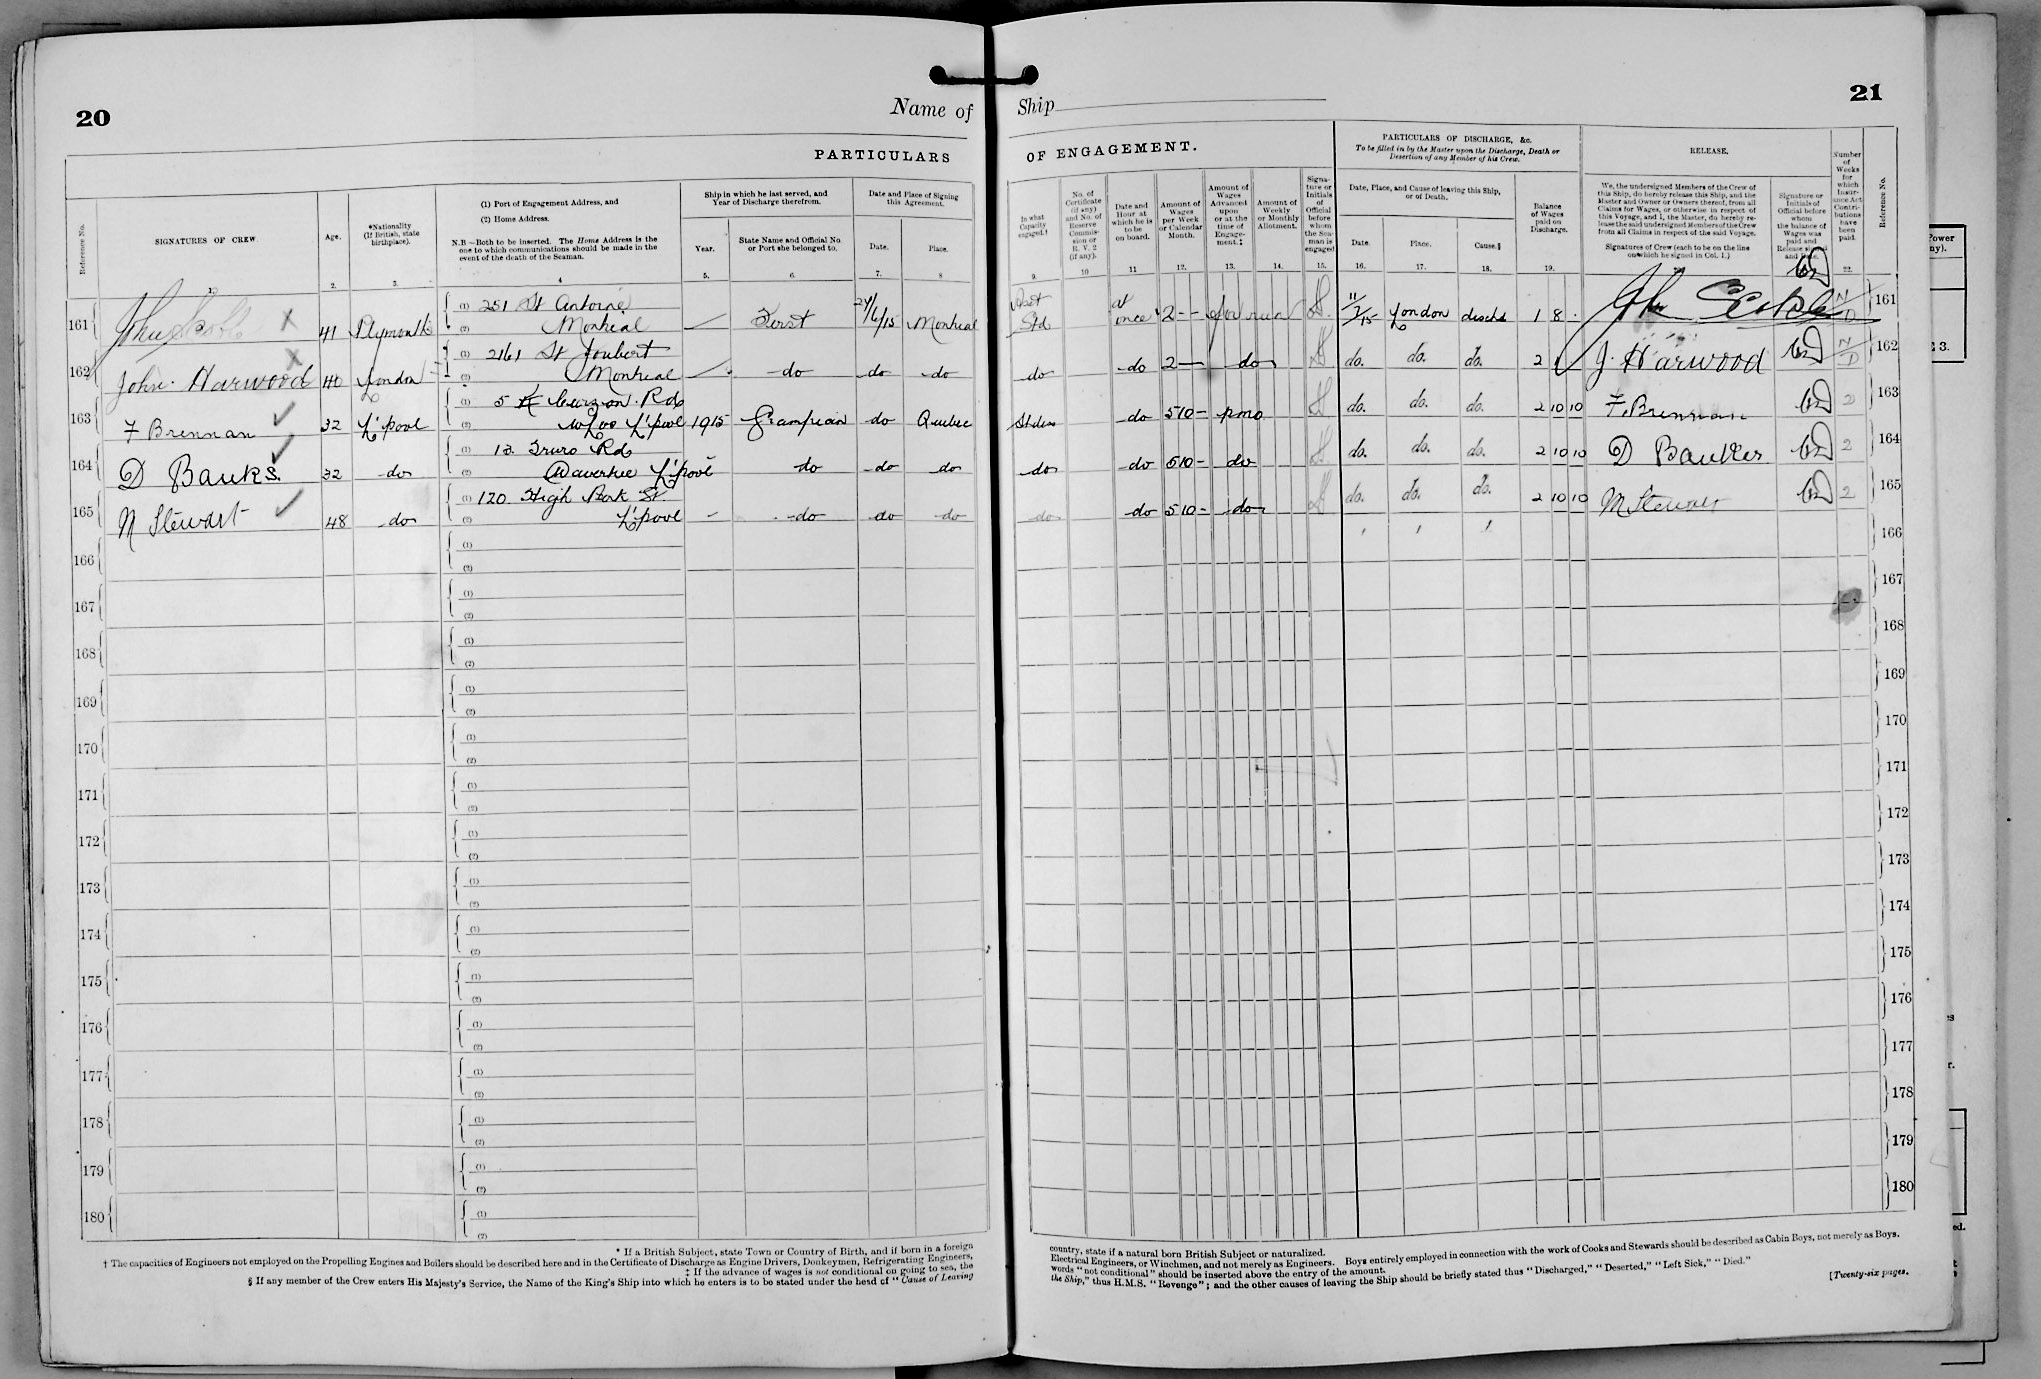 20
Name of Ship
21
PARTICULARS OF ENGAGEMENT.
PARTICULARS OF DISCHARGE, &c.
To be filled in by the Master upon the Discharge, Death or Desertion of any Member of his Crew.
RELEASE.
Number of Weeks for which Insurance Act Contributions have been paid.
Reference No.
SIGNATURES OF CREW.
Age.
*Nationality (If British, state birthplace).
(1) Port of Engagement Address, and
(2) Home Address.
N.B.—Both to be inserted. The Home Address is the one to which communications should be made in the event of the death of the Seaman.
Ship in which he last served, and Year of Discharge therefrom.
Year.
State Name and Official No. or Port she belonged to.
Date and Place of Signing this Agreement.
Date.
Place.
In what Capacity engaged.†
No. of Certificate (if any) and No. of Reserve Commission or R. V. 2 (if any).
Date and Hour at which he is to be on board.
Amount of Wages per Week or Calendar Month.
Amount of Wages Advanced upon or at the time of Engagement.‡
Amount of Weekly or Monthly Allotment.
Signature or Initials of Official before whom the Seaman is engaged
Date, Place, and Cause of leaving this Ship, or of Death.
Date.
Place.
Cause.§
Balance of Wages paid on Discharge.
We, the undersigned Members of the Crew of this Ship, do hereby release this Ship, and the Master and Owner or Owners thereof, from all Claims for Wages, or otherwise in respect of this Voyage, and I, the Master, do hereby release the said undersigned Members of the Crew from all Claims in respect of the said Voyage.
Signatures of Crew (each to be on the line on which he signed in Col. 1.)
Signature or Initials of Official before whom the balance of Wages was paid and Release signed and Date.
Reference No.
1. 2. 3. 4 5. 6. 7. 8 9. 10 11 12. 13. 14. 15. 16. 17. 18. 19. 22.
161 John 41 Plymouth (1) 251 St Antoine
(2) Montreal First 24/6/15 Montreal Std at once 2 - - for run 11/7/15 London dischd 1 8 . John 161
162 John Harwood 40 London (1) 2161 St Joubert
(2) Montreal do do do do do 2 - do do. do. do. 2 J. Harwood 162
163 F Brennan 32 L'pool (1) 5 Curzon Rd
(2) W'loo L'pool 1915 Grampian do Quebec do 5 10 - pmo do. do. do. 2 10 10 F. Brennan 2 163
164 D Banks. 32 do (1) 13 Truro Rd
(2) Wavertree L'pool do do do do do 5 10 - do do. do. do. 2 10 10 D Banks 2 164
165 M Stewart 48 do (1) 120 High Park St.
(2) L'pool - do do do do do 5 10 - do do. do. do. 2 10 10 M Stewart 2 165
166 (1) (2) 166
167 (1) (2) 167
168 (1) (2) 168
169 (1) (2) 169
170 (1) (2) 170
171 (1) (2) 171
172 (1) (2) 172
173 (1) (2) 173
174 (1) (2) 174
175 (1) (2) 175
176 (1) (2) 176
177 (1) (2) 177
178 (1) (2) 178
179 (1) (2) 179
180 (1) (2) 180
* If a British Subject, state Town or Country of Birth, and if born in a foreign country, state if a natural born British Subject or naturalized.
† The capacities of Engineers not employed on the Propelling Engines and Boilers should be described here and in the Certificate of Discharge as Engine Drivers, Donkeymen, Refrigerating Engineers, Electrical Engineers, or Winchmen, and not merely as Engineers. Boys entirely employed in connection with the work of Cooks and Stewards should be described as Cabin Boys, not merely as Boys.
‡ If the advance of wages is not conditional on going to sea, the words "not conditional" should be inserted above the entry of the amount.
§ If any member of the Crew enters His Majesty's Service, the Name of the King's Ship into which he enters is to be stated under the head of "Cause of Leaving the Ship," thus H.M.S. "Revenge"; and the other causes of leaving the Ship should be briefly stated thus "Discharged," "Deserted," "Left Sick," "Died."
[Twenty-six pages.